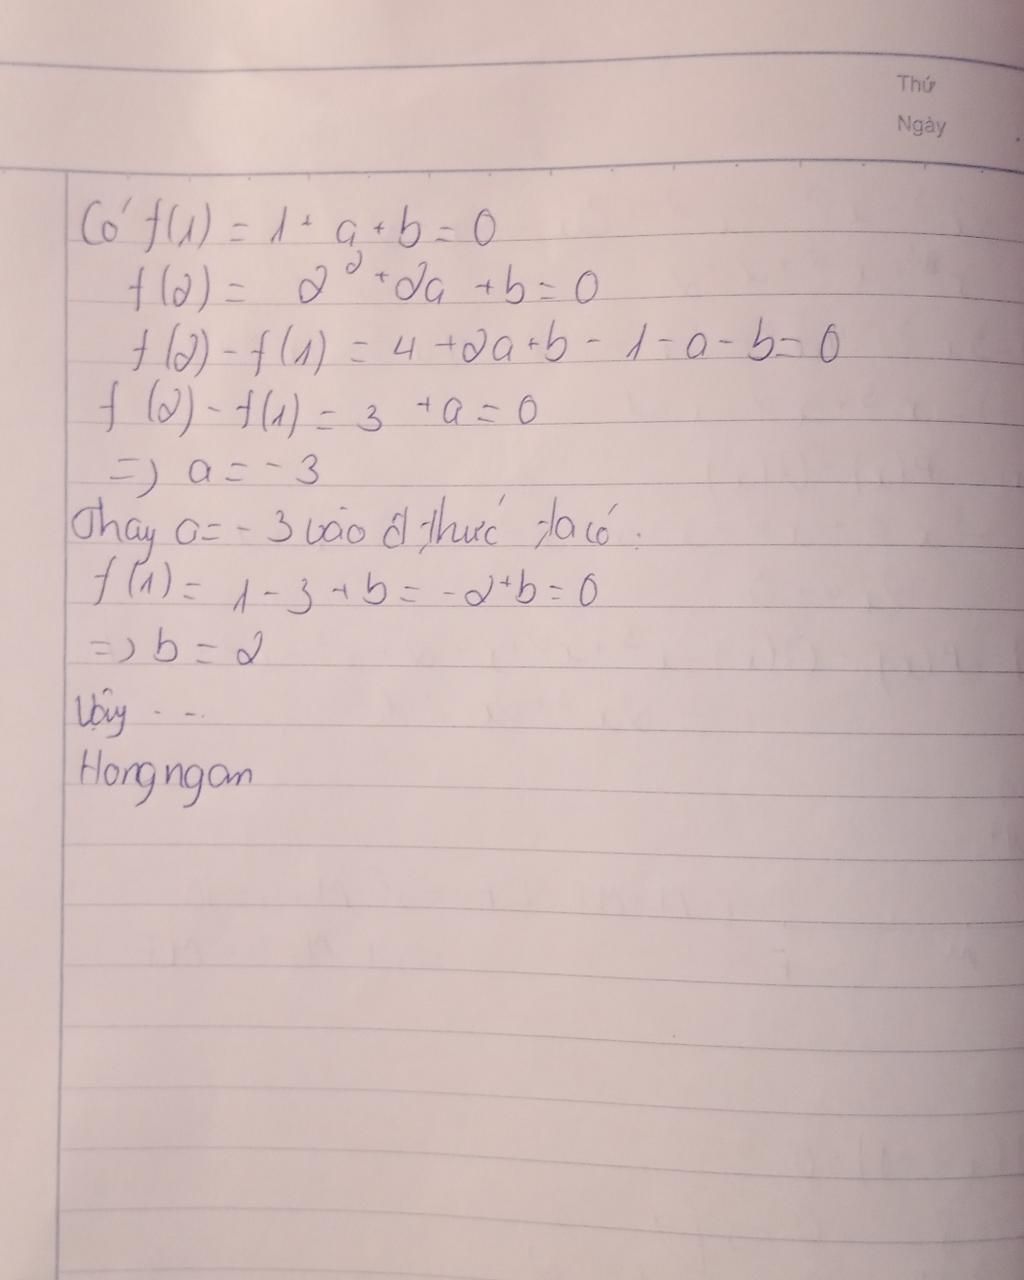 Thứ
Ngày
Có f(1) = 1 + a + b = 0
f(2) = 2² + 2a + b = 0
f(2) - f(1) = 4 + 2a + b - 1 - a - b = 0
f(2) - f(1) = 3 + a = 0
=> a = -3
Thay a = -3 vào đ thức ta có :
f(1) = 1 - 3 + b = -2 + b = 0
=> b = 2
Vậy - -
Hongngan